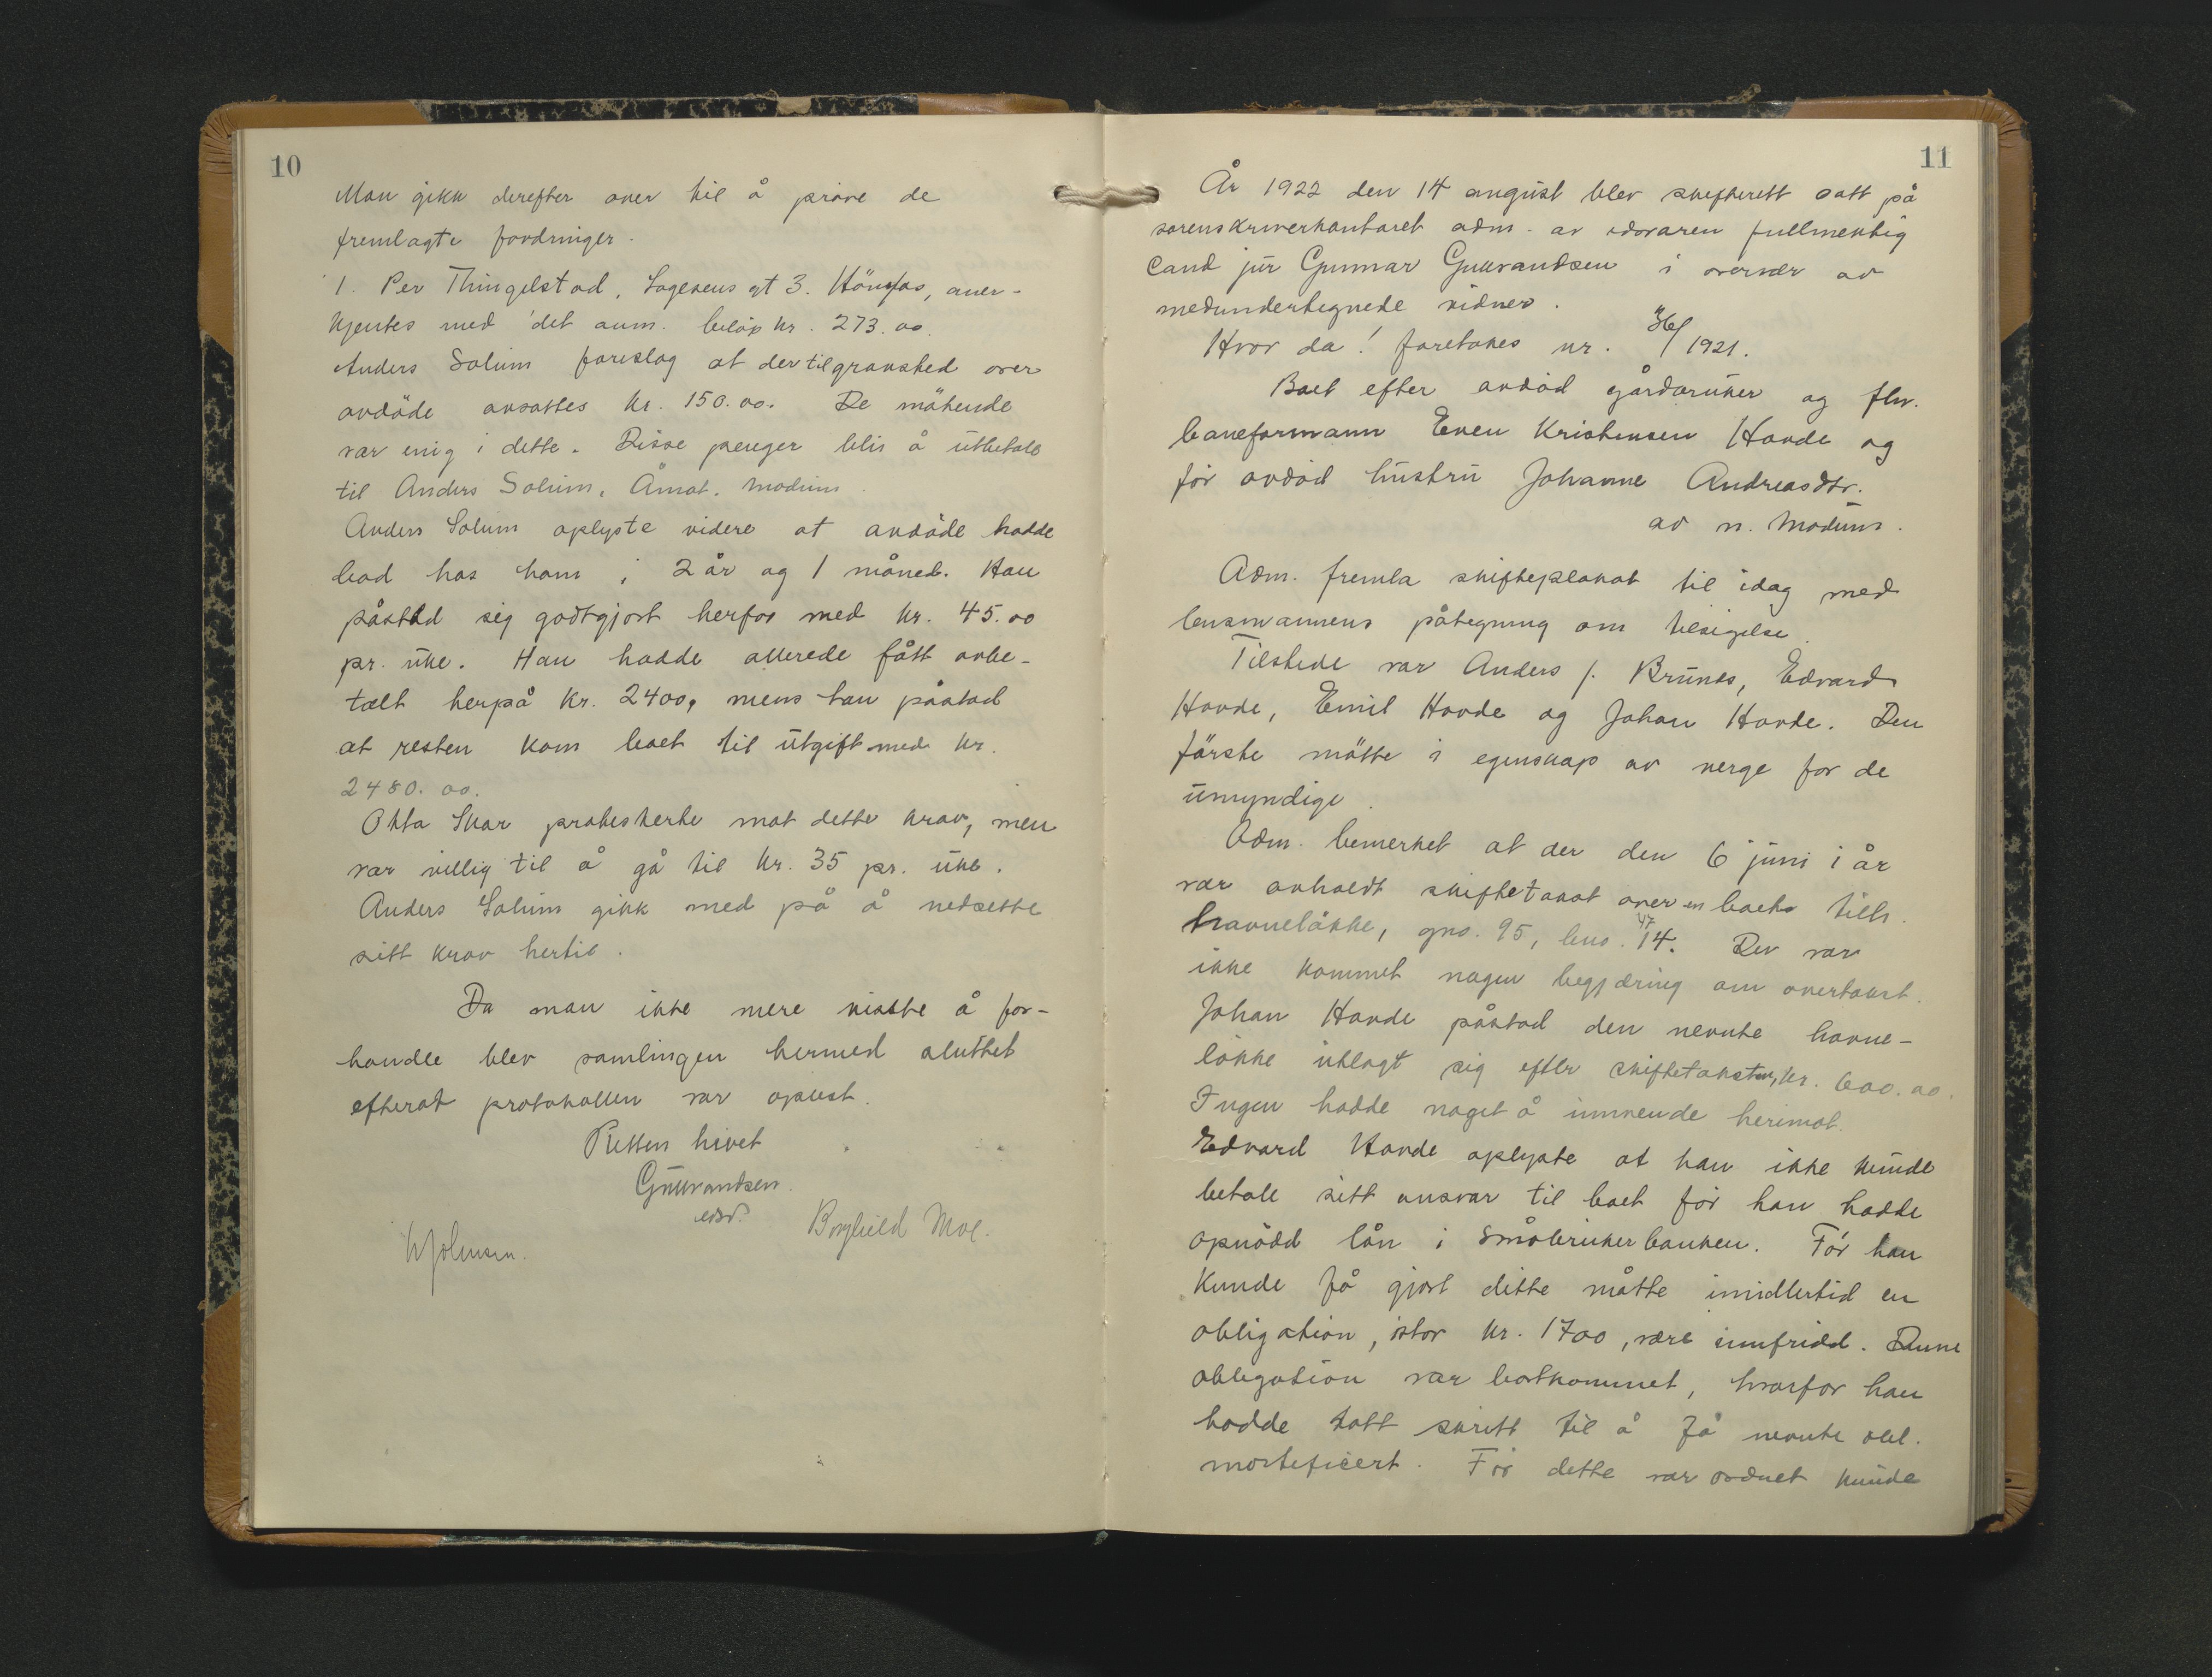 10
Man gikk derefter over til å prøve de
fremlagte fordringer.
1. Per Thingelstad, Sogenens gt 3. Hönefos, aner-
kjentes med det anm. beløp kr. 273.00.
Anders Solum foreslog at der til gravsted over
avdöde avsattes kr. 150.00. De mötende
var enig i dette. Disse penger blir å utbetale
til Anders Solum, Åmot. Modum.
Anders Solum oplyste videre at avdöde hadde
bod hos ham i 2 år og 1 måned. Han
påstod sig godtgjort herfor med kr. 45.00
pr. uke. Han hadde allerede fått avbe-
talt herpå kr. 2400, mens han påstod
at resten kom boet til utgift med kr.
2480.00.
Okta Skar protesterte mot dette krav, men
var villig til å gå til kr. 35 pr. uke.
Anders Solum gikk med på å nedsette
sitt krav hertil.
Da man ikke mere visste å for-
handle blev samlingen hermed sluttet
efterat protokollen var oplest.
Retten hevet
Gullvandsen.
edsv.
Borghild Moe.
W Johnsen.
11
År 1922 den 14 august blev skifterett satt på
sorenskriverkontoret adm. av edsvaren fullmektig
Cand jur Gunnar Gullvandsen i overvær av
medundertegnede vidner.
Hvor da! foretokes nr. 36/1921.
Boet efter avdöd gårdbruker og fhv.
baneformann Even Kristensen Hovde og
för avdöd hustru Johanne Andreasdtr.
av n. Modum.
Adm. fremla skifteplakat til idag med
lensmannens påtegning om tilsigelse.
Tilstede var Anders J. Brunes, Edvard
Hovde, Emil Hovde og Johan Hovde. Den
förste mötte i egenskap av verge for de
umyndige.
Adm. bemerket at der den 6 juni i år
var avholdt skiftetakst over en boets tilh.
havneløkke, gno. 95, bno. 47 14. Der var
ikke kommet nogen begjæring om overtakst.
Johan Hovde påstod den nevnte havne-
løkke utlagt sig efter skiftetaksten, kr. 600.00.
Ingen hadde noget å innvende herimot.
Edvard Hovde oplyste at han ikke kunde
betale sitt ansvar til boet för han hadde
opnådd lån i Småbrukerbanken. För han
kunde få gjort dette måtte imidlertid en
obligation, stor kr. 1700, være innfridd. Denne
obligation var bortkommet, hvorfor han
hadde tatt skritt til å få nevnte obl.
mortificert. För dette var ordnet kunde